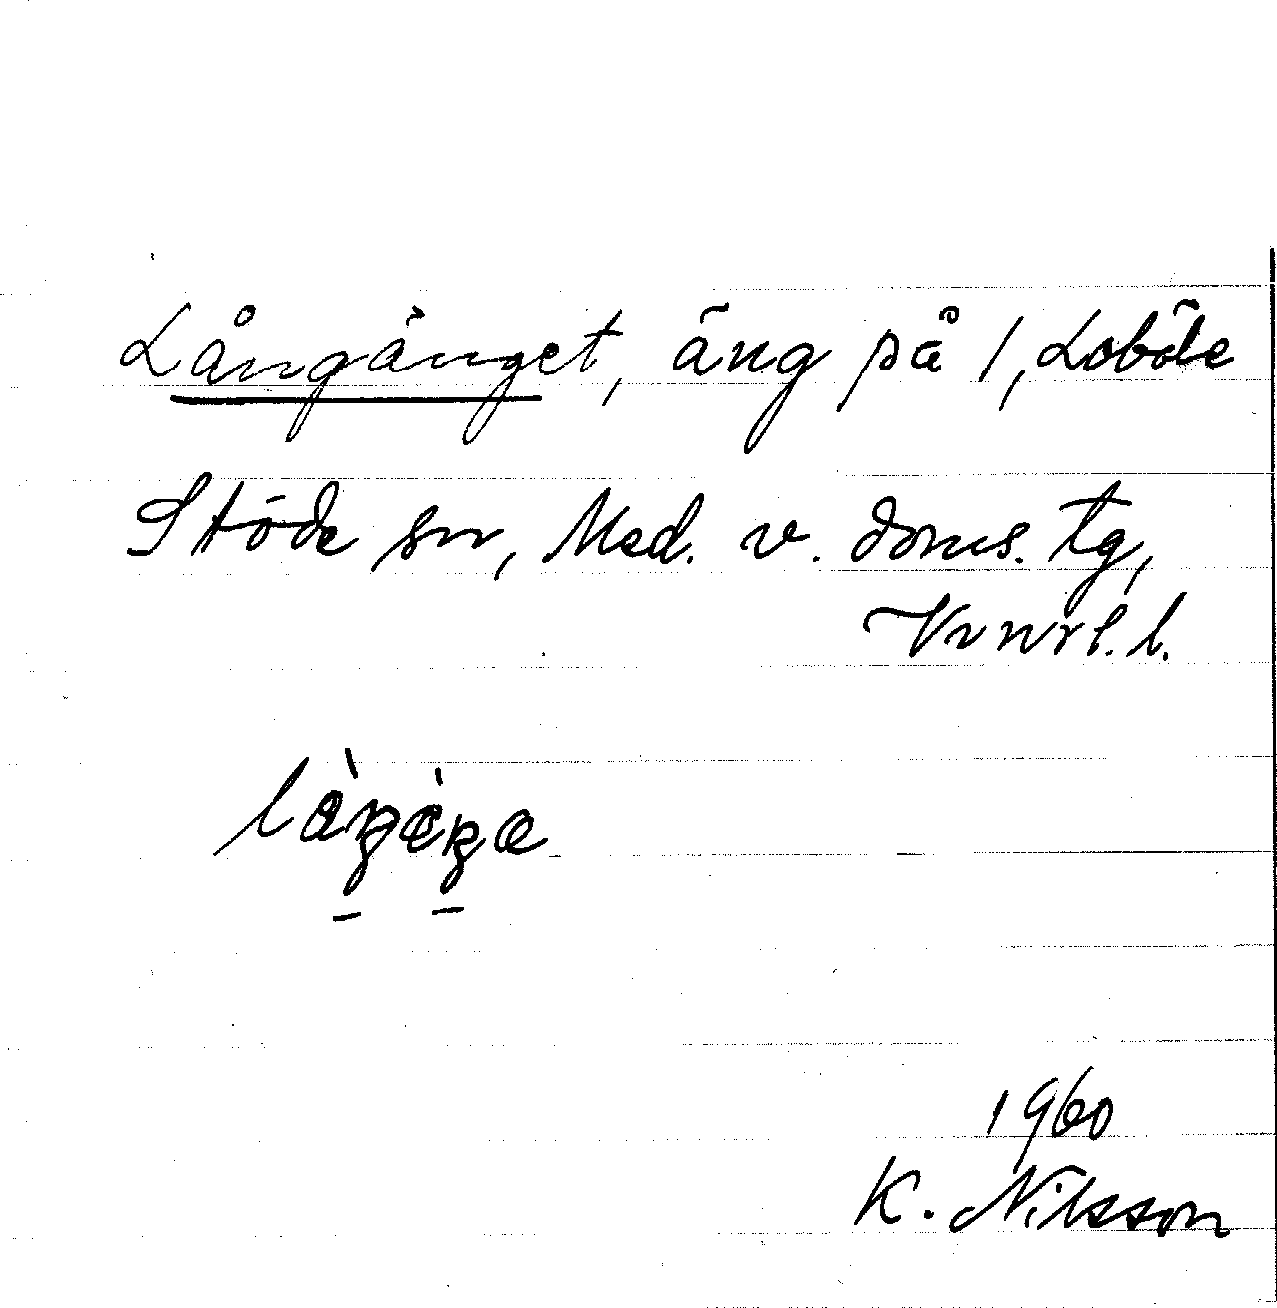 Långänget, äng på 1, Loböle
Stöde sn, Med. v. doms. tg,
Vnnrl. l.
1960
K. Nilsson